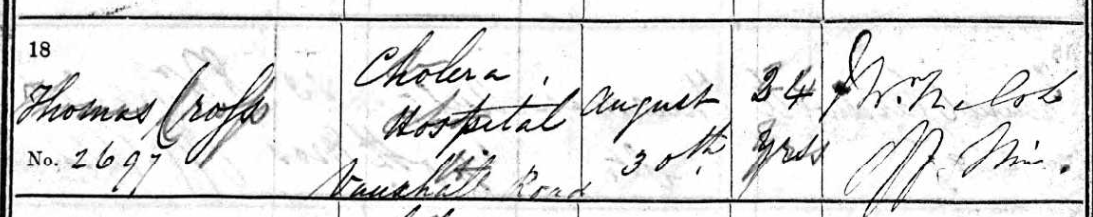 18
Thomas Cross
No. 2697
Cholera
Hospital
Vauxhall Road
August
30th
24
yrs
Min.